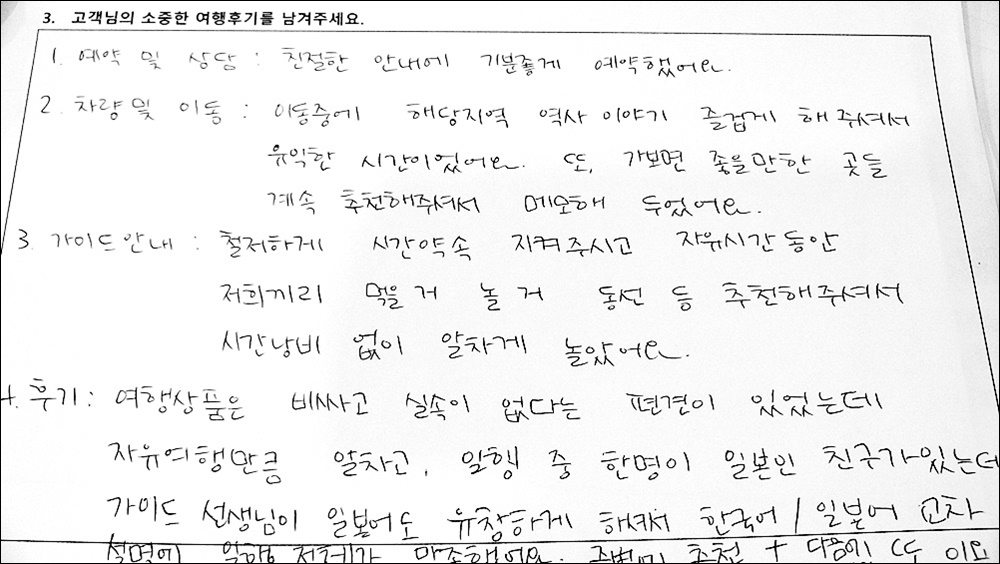 3. 고객님의 소중한 여행후기를 남겨주세요.
1. 예약 및 상담 : 친절한 안내에 기분좋게 예약했어요.
2. 차량 및 이동 : 이동중에 해당지역 역사 이야기 즐겁게 해 주셔서
유익한 시간이었어요. 또, 가보면 좋을만한 곳들
계속 추천해주셔서 메모해 두었어요.
3. 가이드 안내 : 철저하게 시간약속 지켜주시고 자유시간 동안
저희끼리 먹을 거 놀 거 동선 등 추천해주셔서
시간낭비 없이 알차게 놀았어요.
4. 후기 : 여행상품은 비싸고 실속이 없다는 편견이 있었는데
자유여행만큼 알차고, 일행 중 한명이 일본인 친구가있는데
가이드 선생님이 일본어도 유창하게 하셔서 한국어 / 일본어 교차
설명에 일행 전체가 만족했어요. 주변에 추천 + 다음에 또 이요